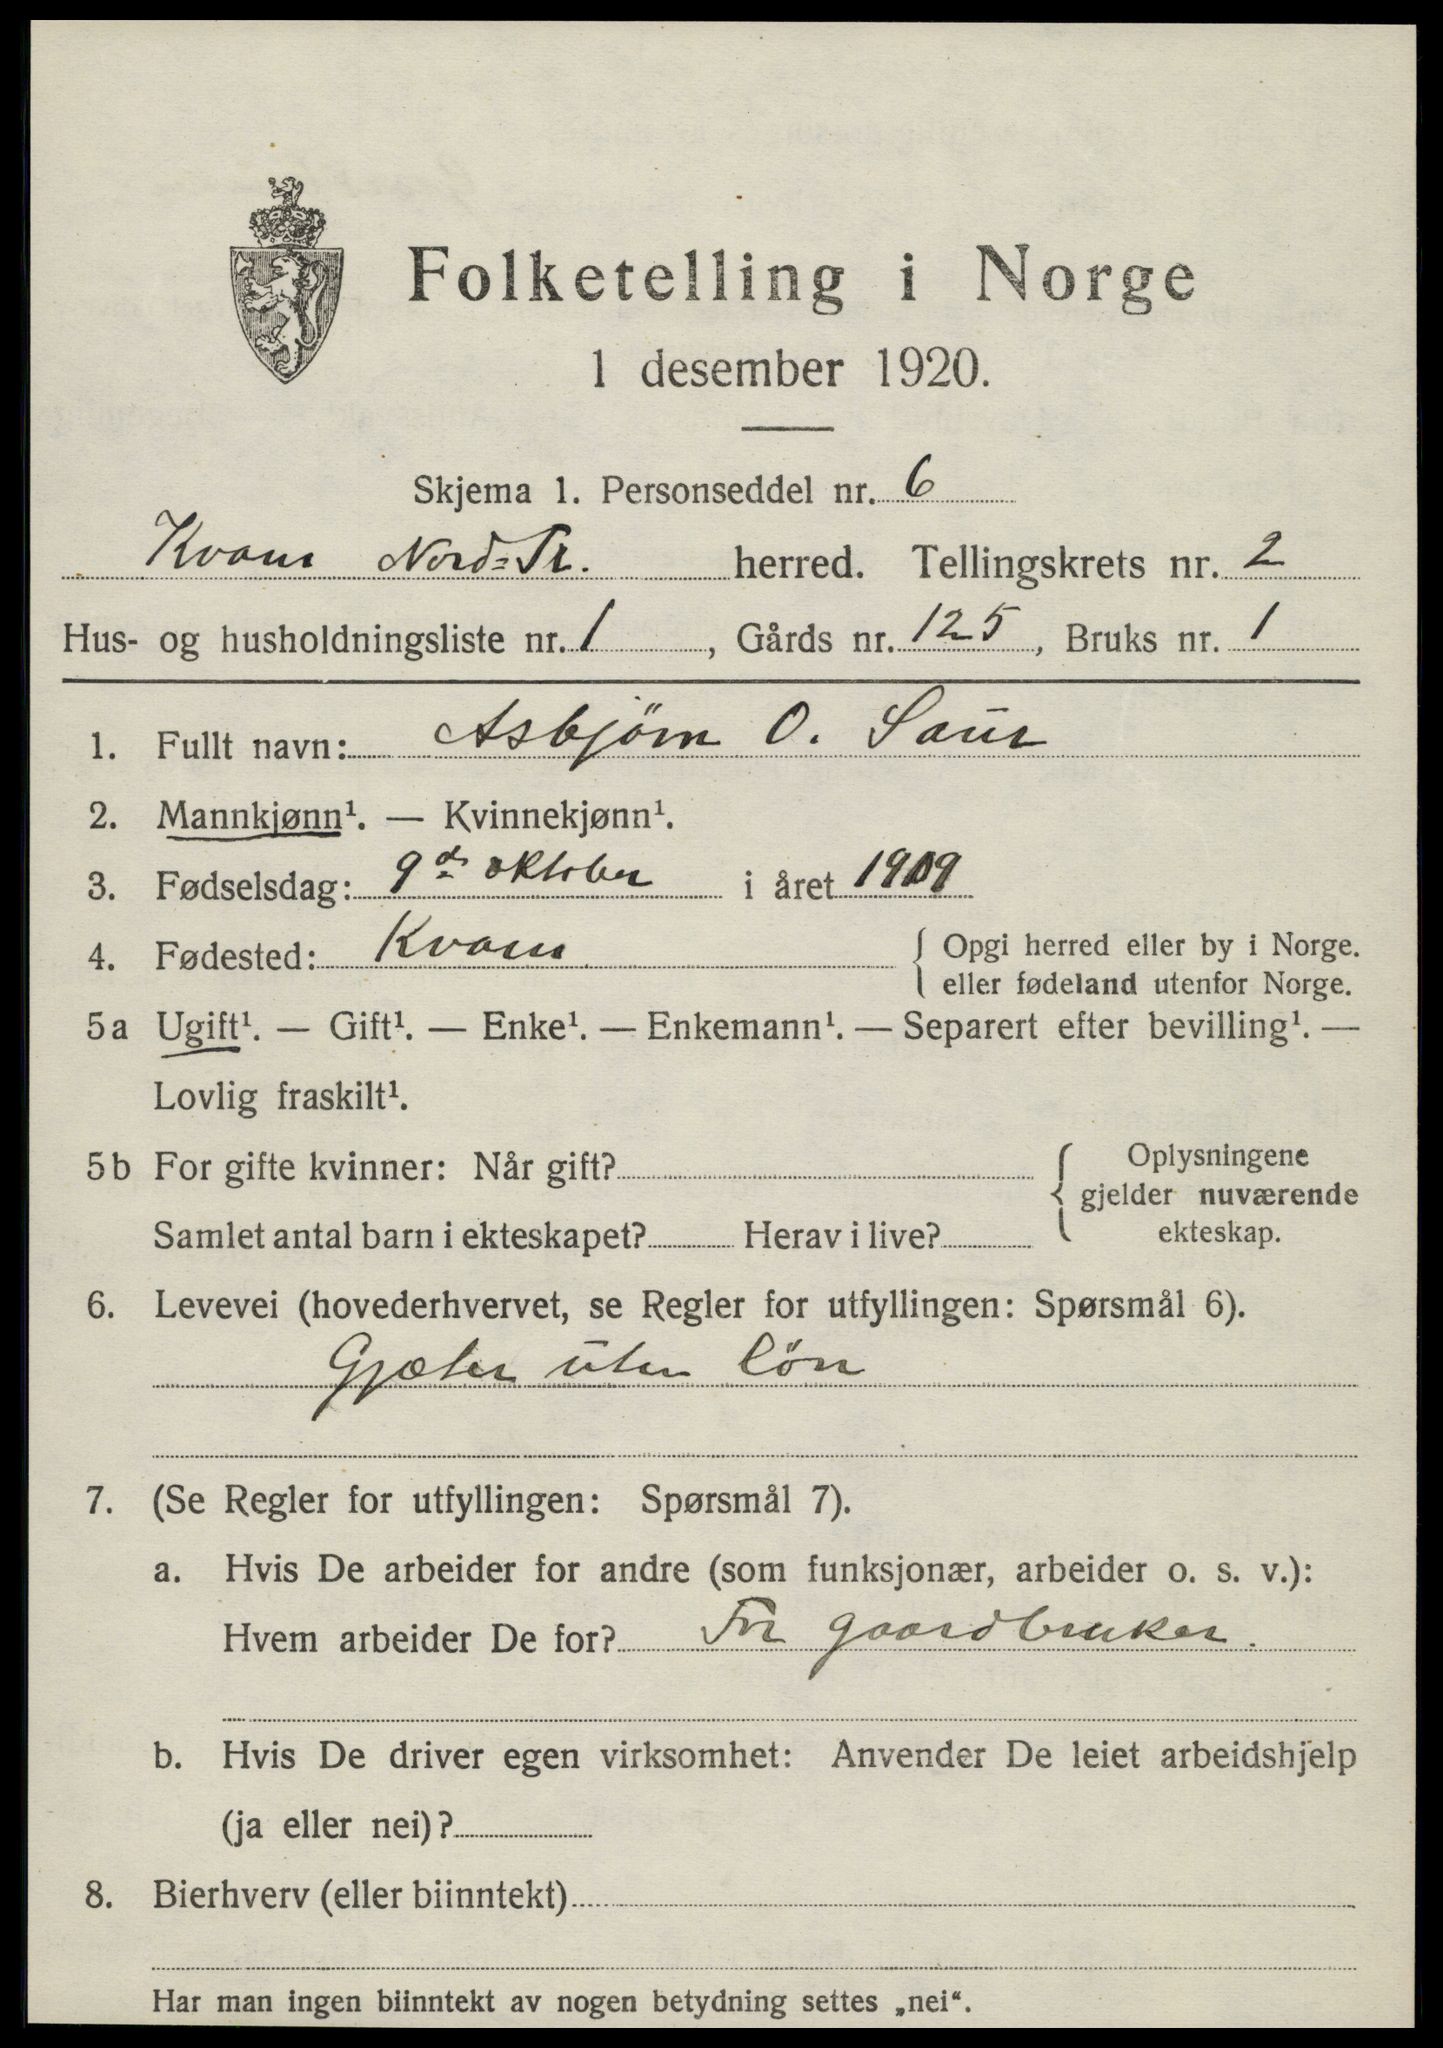 Folketelling i Norge
1 desember 1920.
Skjema 1. Personseddel nr. 6
Kvam Nord=Tr. herred. Tellingskrets nr. 2
Hus- og husholdningsliste nr. 1, Gårds nr. 125, Bruks nr. 1
1. Fullt navn: Asbjörn O. Saur
2. Mannkjønn¹. — Kvinnekjønn¹.
3. Fødselsdag: 9de oktober i året 1909
4. Fødested: Kvam { Opgi herred eller by i Norge.
eller fødeland utenfor Norge.
5a Ugift¹. — Gift¹. — Enke¹. — Enkemann¹. — Separert efter bevilling¹. —
Lovlig fraskilt¹.
5b For gifte kvinner: Når gift? { Oplysningene
gjelder nuværende
Samlet antal barn i ekteskapet? Herav i live? ekteskap.
6. Levevei (hovederhvervet, se Regler for utfyllingen: Spørsmål 6).
Gjæter uten lön
7. (Se Regler for utfyllingen: Spørsmål 7).
a. Hvis De arbeider for andre (som funksjonær, arbeider o. s. v.):
Hvem arbeider De for? For gaardbruker.
b. Hvis De driver egen virksomhet: Anvender De leiet arbeidshjelp
(ja eller nei)?
8. Bierhverv (eller biinntekt)
Har man ingen biinntekt av nogen betydning settes „nei“.